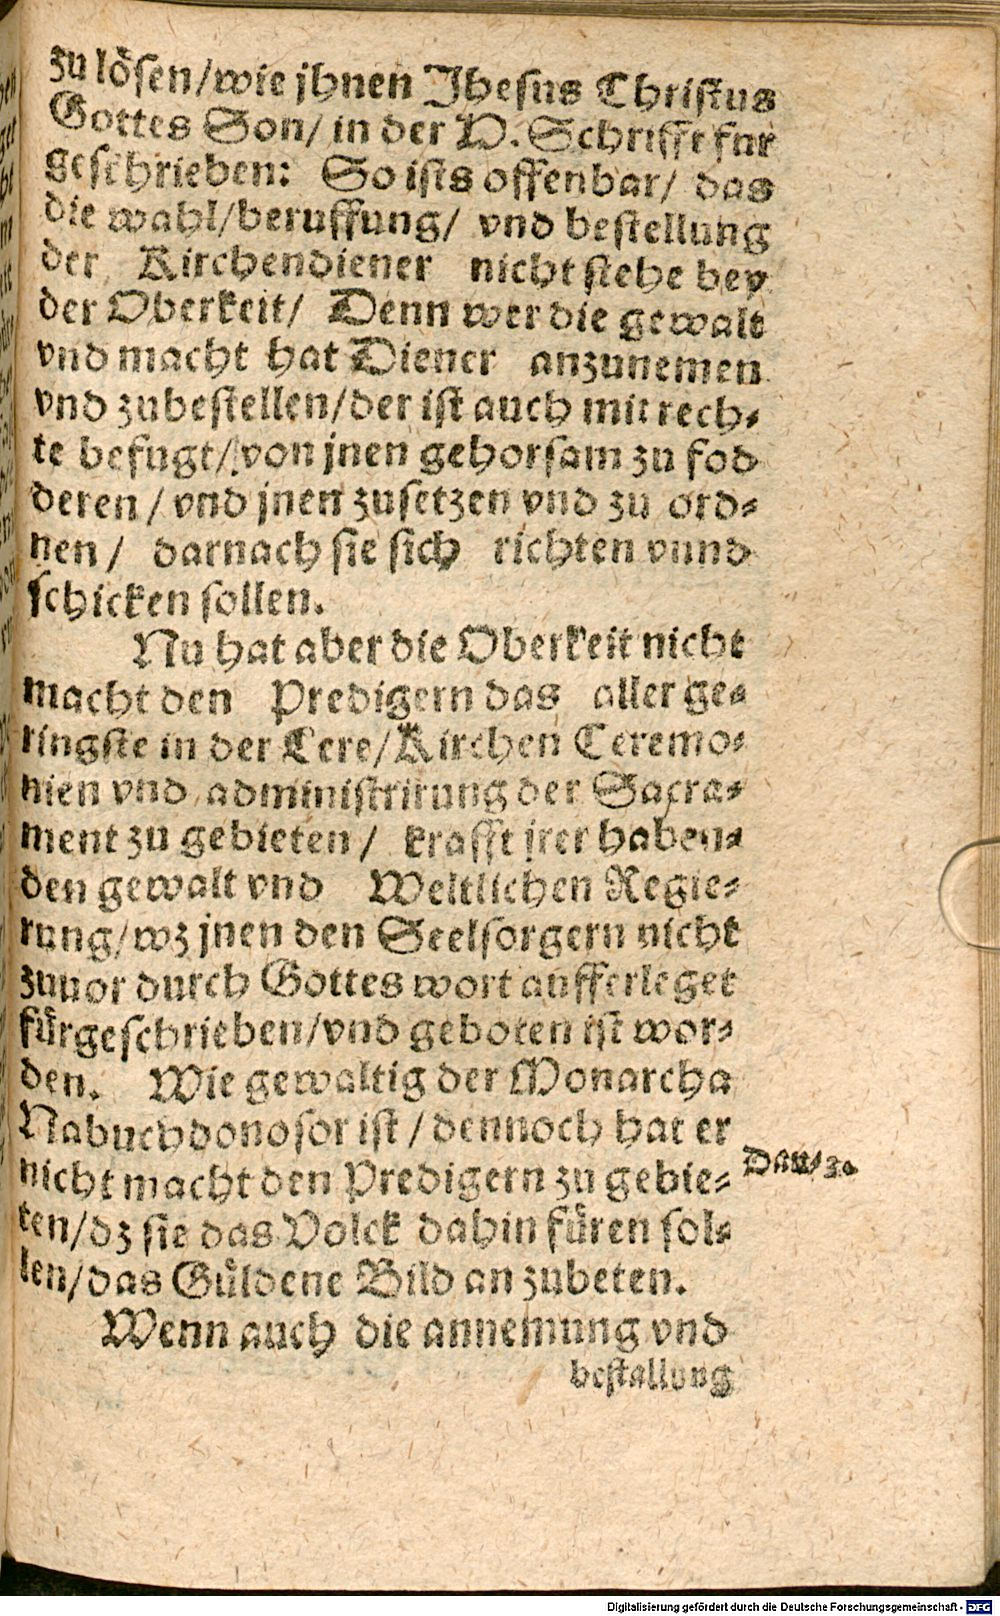 zu lösen/wie jhnen Jhesus Christus
Gottes Son/ in der H. Schrifft fur
geschrieben: So ists offenbar/ das
die wahl/beruffung/ vnd bestellung
der Kirchendiener nicht stehe bey
der Oberkeit/ Denn wer die gewalt
vnd macht hat Diener anzunemen
vnd zubestellen/der ist auch mit rech-
te befugt/von jnen gehorsam zu fod
deren / vnd jnen zusetzen vnd zu ord-
nen / darnach sie sich richten vnnd
schicken sollen.
Nu hat aber die Oberkeit nicht
macht den Predigern das aller ge-
ringste in der Lere/Kirchen Ceremo-
nien vnd administrirung der Sacra-
ment zu gebieten / krafft jrer haben-
den gewalt vnd Weltlichen Regie-
rung/wz jnen den Seelsorgern nicht
zuuor durch Gottes wort aufferleget
fürgeschrieben/vnd geboten ist wor-
den. Wie gewaltig der Monarcha
Nabuchdonosor ist / dennoch hat er
nicht macht den Predigern zu gebie-
Dan. 3.
ten/dz sie das Volck dahin füren sol-
len/das Güldene Bild an zubeten.
Wenn auch die annemung vnd
bestallung
Digitalisierung gefördert durch die Deutsche Forschungsgemeinschaft - DFG